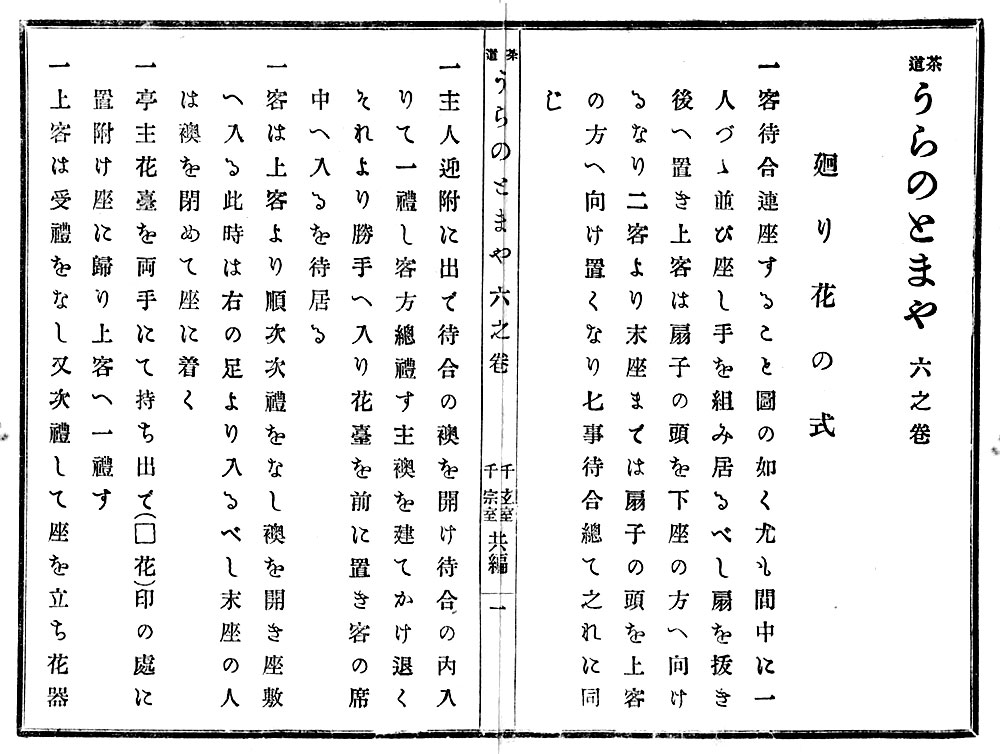 茶道うらのとまや 六之卷
廻り花の式
一客待合連座すること圖の如く尤も間中に一
人づゝ並び座し手を組み居るべし扇を拔き
後へ置き上客は扇子の頭を下座の方へ向け
るなり二客より末座までは扇子の頭を上客
の方へ向け置くなり七事待合總て之れに同
じ
茶道うらのとまや六之卷 千玄室千宗室共編 一
一主人迎附に出で待合の襖を開け待合の內入
りて一禮し客方總禮す主襖を建てかけ退く
それより勝手へ入り花臺を前に置き客の席
中へ入るを待居る
一客は上客より順次次禮をなし襖を開き座敷
へ入る此時は右の足より入るべし末座の人
は襖を閉めて座に着く
一亭主花臺を両手にて持ち出で(□花)印の處に
置附け座に歸り上客へ一禮す
一上客は受禮をなし又次禮して座を立ち花器